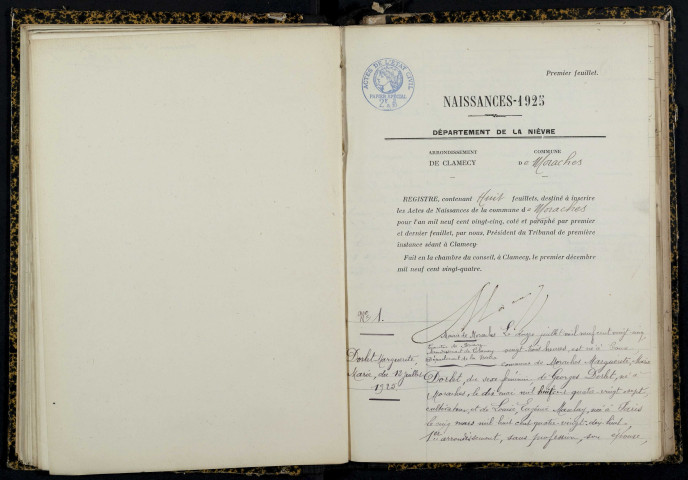 Premier feuillet.
ACTES DE L'ETAT CIVIL
PAPIER SPECIAL
NAISSANCES-1925
DÉPARTEMENT DE LA NIÈVRE
ARRONDISSEMENT
DE CLAMECY
COMMUNE
DE Moraches
REGISTRE, contenant Huit feuillets, destiné à inscrire
les Actes de Naissances de la commune de Moraches
pour l'an mil neuf cent vingt-cinq, coté et paraphé par premier
et dernier feuillet, par nous, Président du Tribunal de première
instance séant à Clamecy
Fait en la chambre du conseil, à Clamecy, le premier décembre
mil neuf cent vingt-quatre.
N° 1.
Dorlet Marguerite,
Marie, du 12 juillet
1925
Mairie de Moraches Le juillet mil neuf cent vingt cinq
Arrondissement de Clamecy vingt trois heures, est née à
Département de la Nièvre commune de Moraches Marguerite, Marie
Dorlet, du sexe féminin de Georges Dorlet, né à
Moraches le dix mai mil huit cent quatre vingt sept,
cultivateur, et de Louise, Eugénie née à Paris
le cinq mars mil huit cent quatre-vingt-dix huit,
arrondissement, sans profession, son épouse,